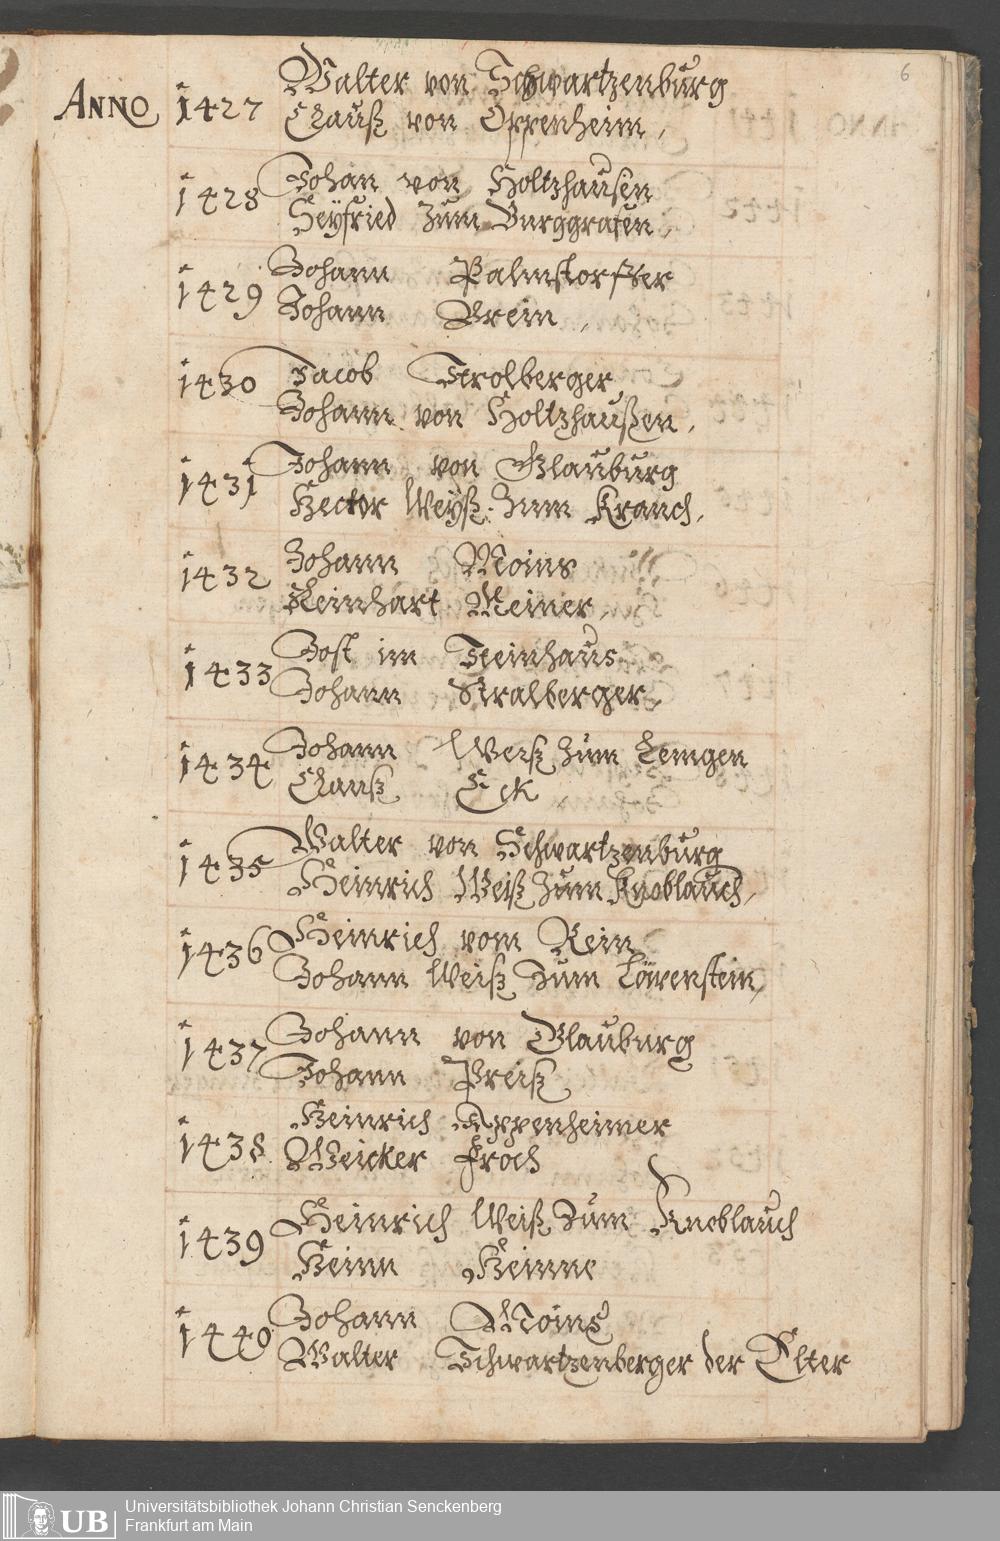 6
ANNO 1427 Walter von Schwartzenburg
Clauß von Oppenheim,
1428 Johan von Holtzhausen
Seyfried Zum Burggrafen,
1429 Johann Palmstorffer
Johann Brein,
1430 Jacob Strolberger
Johann von Holtzhaußen,
1431 Johann von Glauburg
Hector Weyß Zum Kranch,
1432 Johann Moins
Reinhart Meiner,
1433 Jost im Steinhaus
Johann Stralberger,
1434 Johann Weiß Zum Lemgen
Clauß Eck
1435 Walter von Schwartzenburg
Heinrich Weiß Zum Knoblauch,
1436 Heinrich vom Rein
Johann Weiß Zum Löwenstein,
1437 Johann von Glauburg
Johann Preiß
1438 Heinrich Appenheimer
Weicker Frosch
1439 Heinrich Weiß Zum Knoblauch
Heinn Heinne
1440 Johann Moins
Walter Schwartzenberger der Elter
UB Universitätsbibliothek Johann Christian Senckenberg
Frankfurt am Main